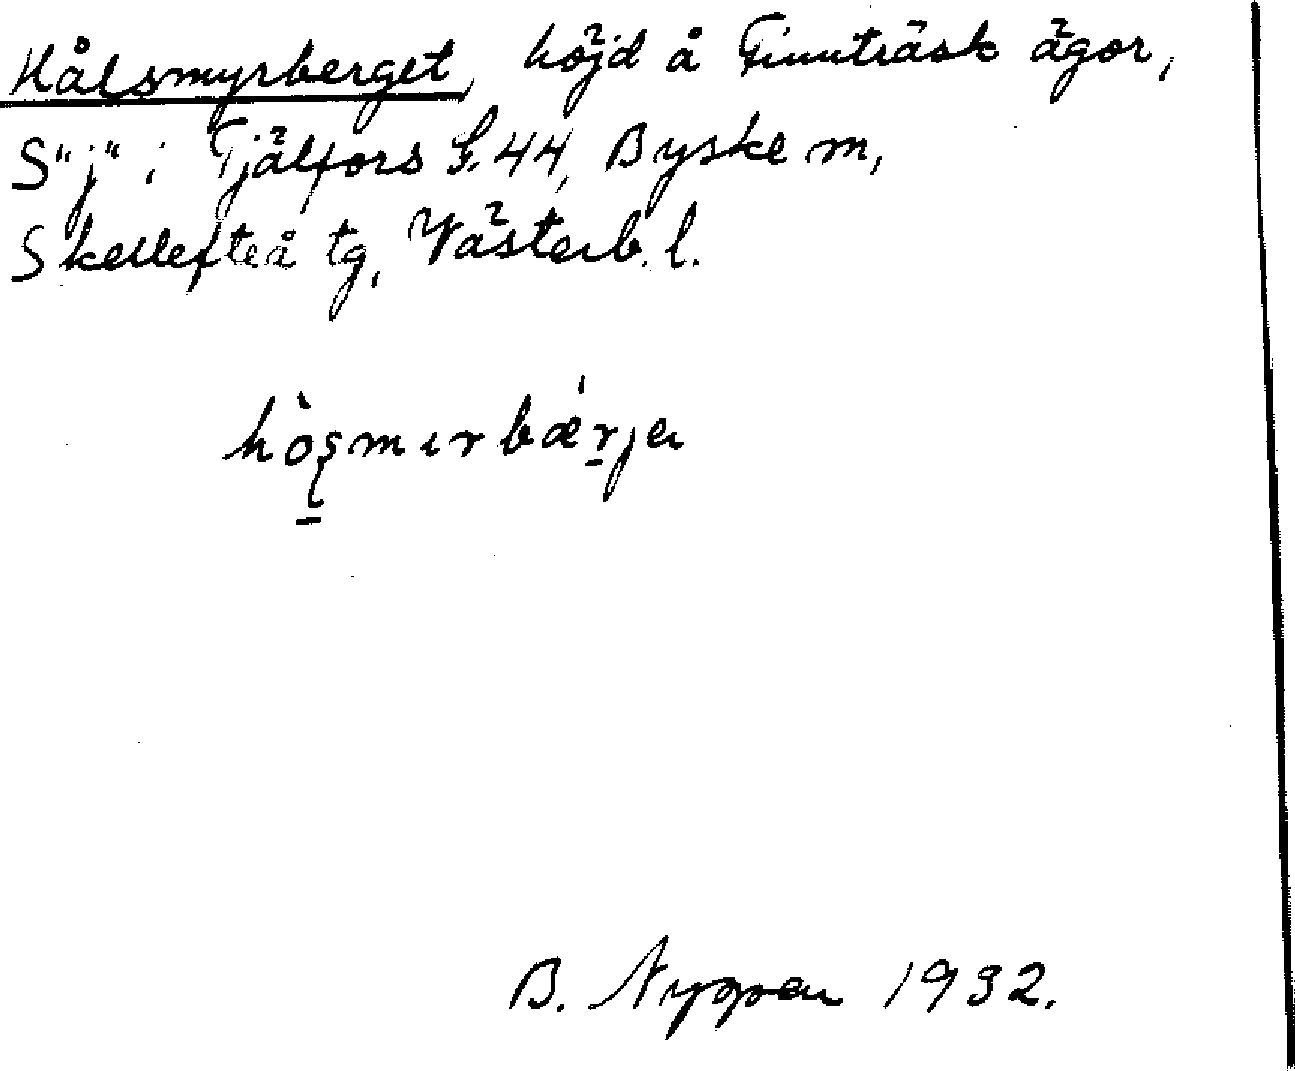 Hålsmyrberget, höjd å Finnträsk ägor,
S "j" i Fjälfors G. 44, Byske m,
Skellefteå tg, Västerb. l.
B. Nygren 1932.